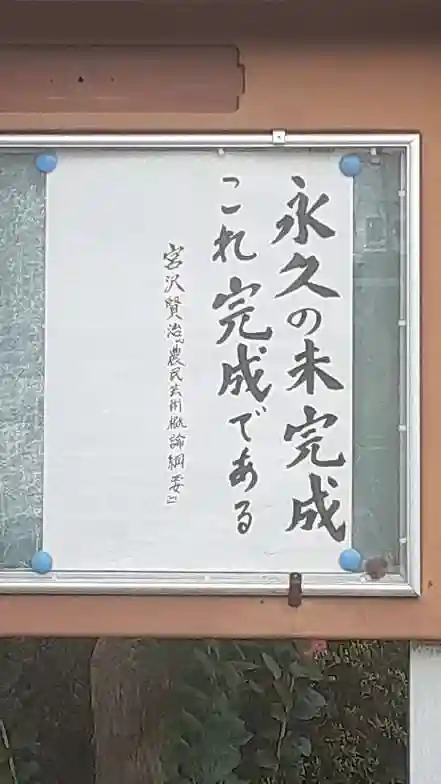 永久の未完成
これ完成である
宮沢賢治『農民芸術概論綱要』